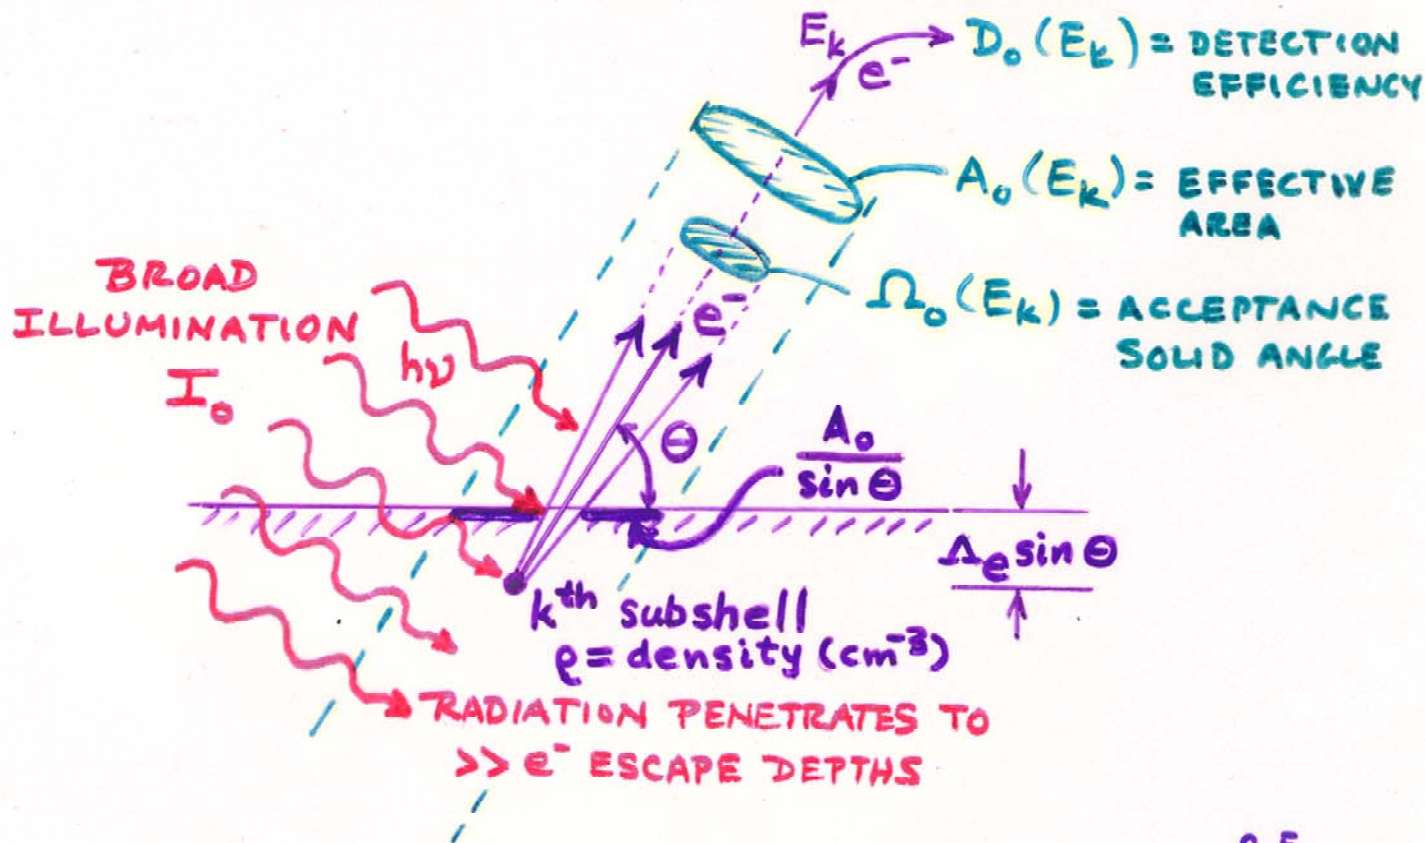 E_k
e⁻
D₀(E_k) = DETECTION
EFFICIENCY
A₀(E_k) = EFFECTIVE
AREA
Ω₀(E_k) = ACCEPTANCE
SOLID ANGLE
BROAD
ILLUMINATION
I₀
hν
e⁻
θ
A₀
sin θ
Λ_e sin θ
kᵗʰ subshell
ρ = density (cm⁻³)
RADIATION PENETRATES TO
>> e⁻ ESCAPE DEPTHS